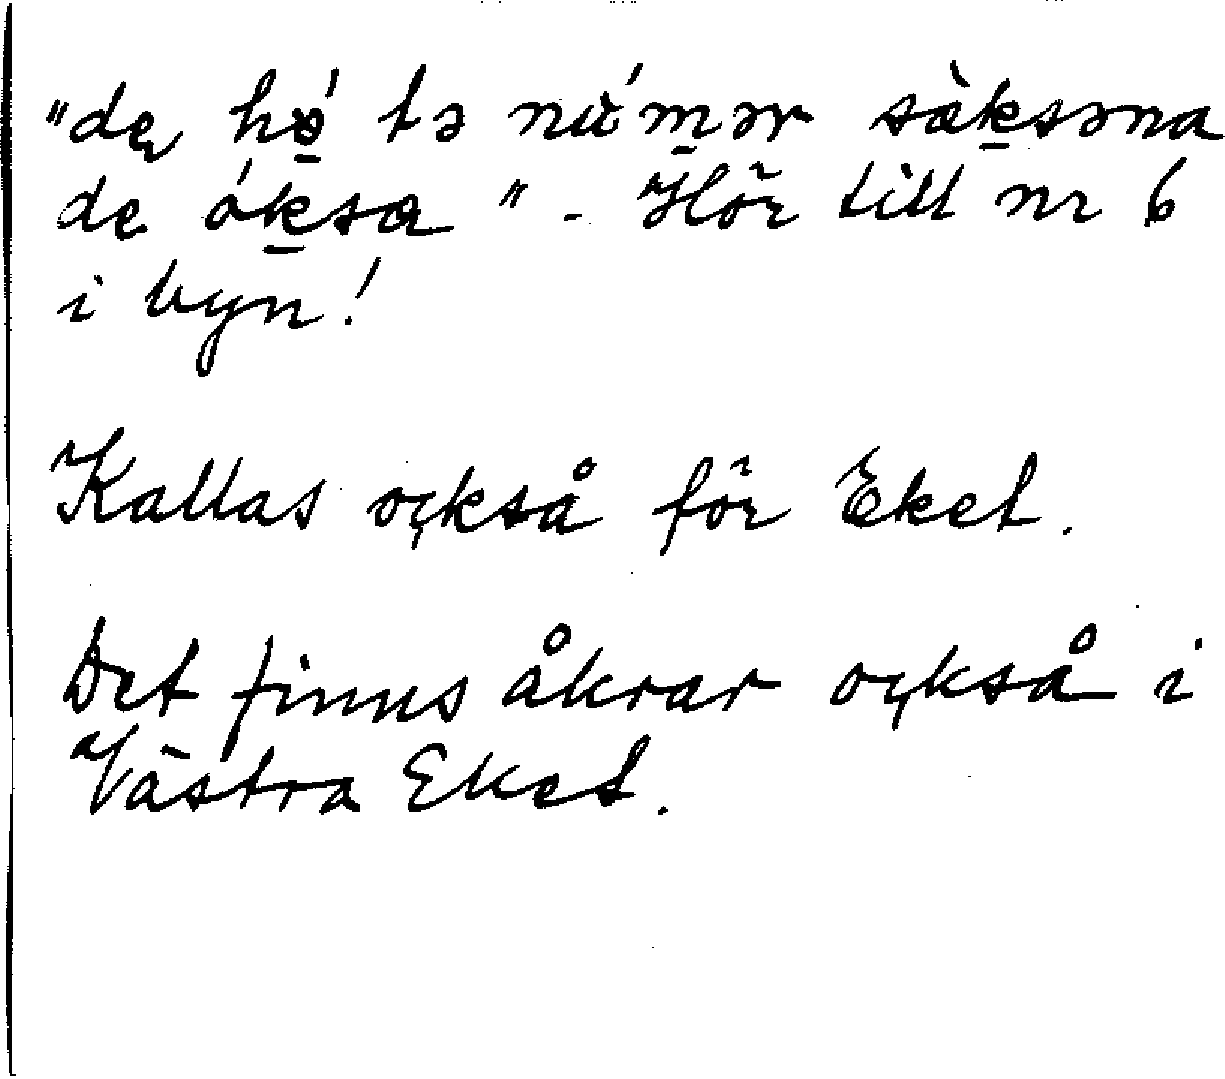 "de hǿ tə nu̇́m̱ər sàḵsəna
de óḵsa" - Hör till nr 6
i byn!
Kallas också för Eket.
Det finns åkrar också i
Västra Eket.